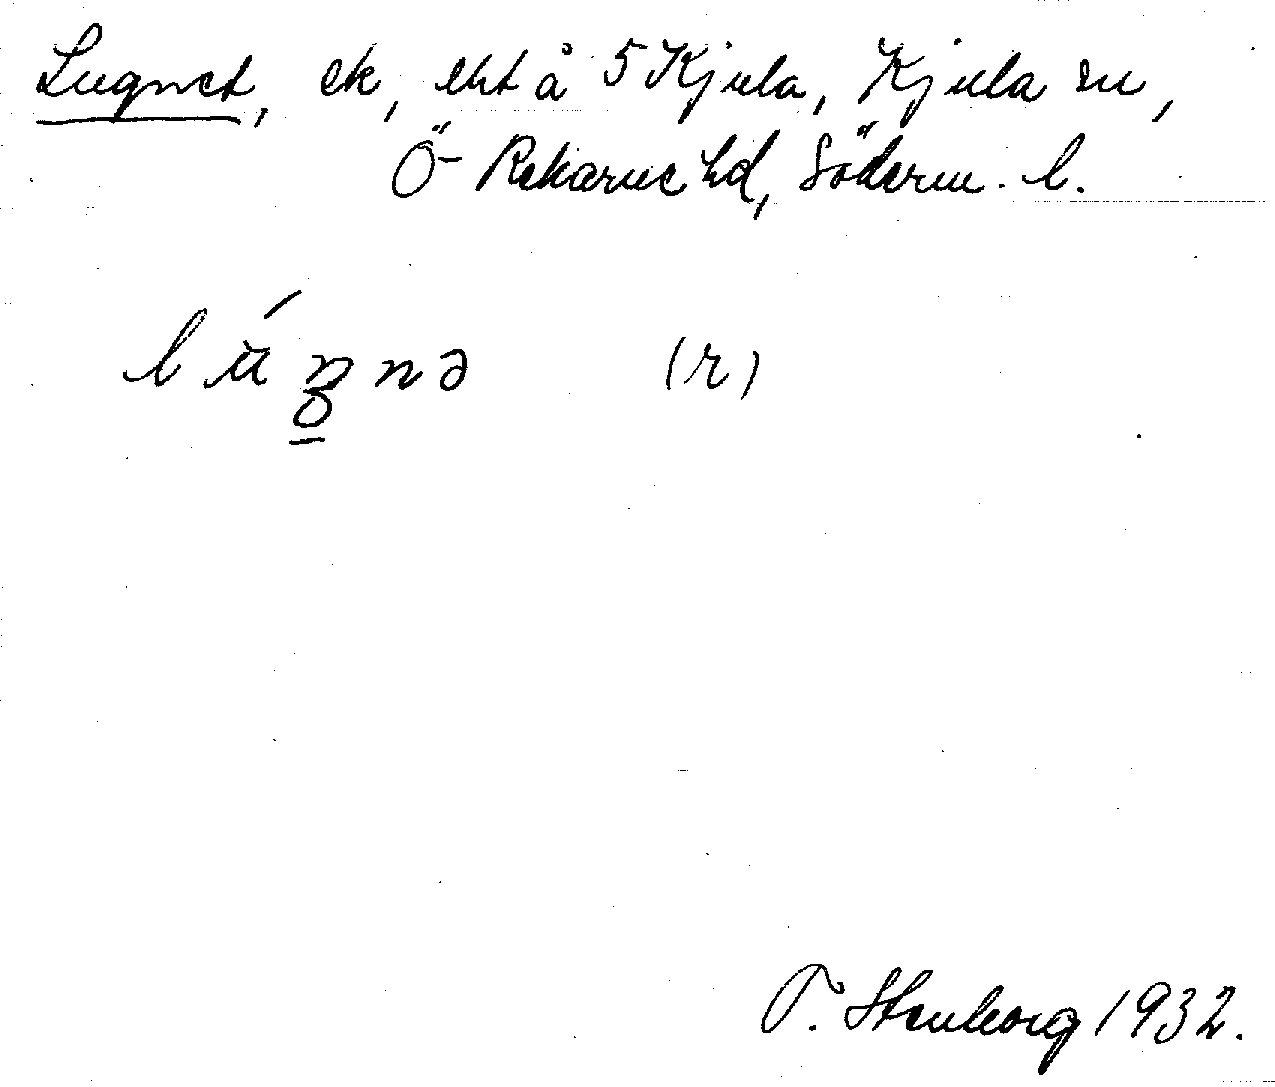 Lugnet, ek, ekt å 5 Kjula, Kjula sn,
Ö-Rekarne hd, Söderm. l.
(r)
T. Stenborg 1932.